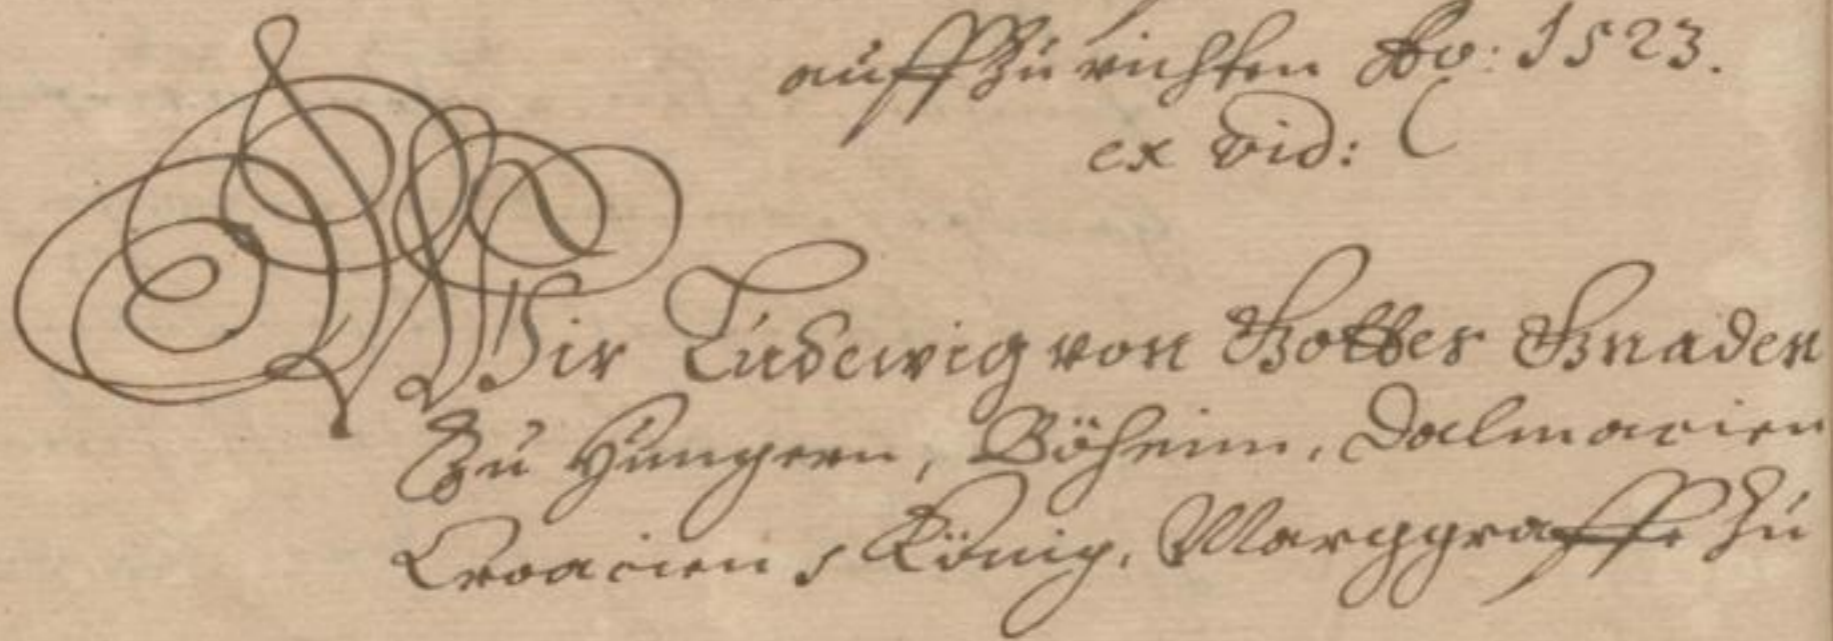 auffzürichten Ao: 1523.
ex vid:
Wir Ludewig von Gottes Gnaden
Zu Hungern, Böheim, Dalmacien
Croacien, König, Marggraffe zu